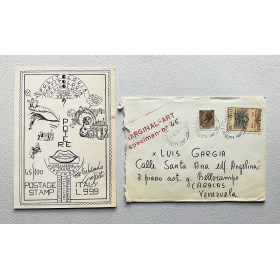 POIRE
45/100
POSTAGE
STAMP
ITALY
L.999
MARGINAL-ART
specimen-nr 45
x LUIS GARGIA
Calle Santa Ana edf Angelina
3 piano aot. q Bellocampo
CARACAS
Venezuela